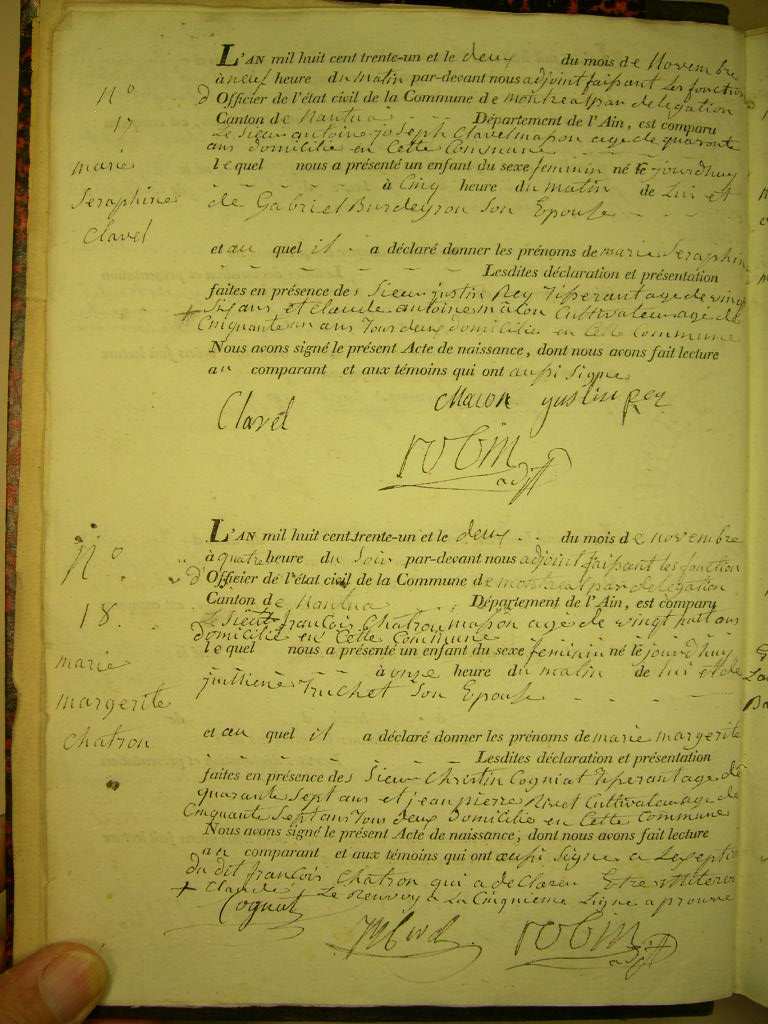 L'AN mil huit cent trente-un et le deux du mois de Novembre
à neuf heure du matin par-devant nous adjoint faisant les fonction
N.o
d'Officier de l'état civil de la Commune de montreal par delegation
17.
Canton de Nantua Département de l'Ain, est comparu
Le Sieur antoine joseph Clavel mason age de quarante
ans domicilie en Cette Commune
marie
lequel nous a présenté un enfant du sexe feminin né le jourdhuy
à Cinq heure du matin de Lui et
Seraphine
de Gabriel Burdeyron Son Epouse
Clavel
et au quel il a déclaré donner les prénoms de marie Seraphine
Lesdites déclaration et présentation
faites en présence des Sieur justin Rey tisserant age de vingt
+ Six ans, et claude antoine maçon Cultivateur age de
Cinquante un ans Tous deux domicilie en Cette Commune
Nous avons signé le présent Acte de naissance, dont nous avons fait lecture
au comparant et aux témoins qui ont aussi signe
Clavel Macon justin Rey
robin
adjt
L'AN mil huit cent trente-un et le deux du mois de novembre
N.o
à quatre heure du Soir par-devant nous adjoint faisant les fonction
d'Officier de l'état civil de la Commune de montreal par delegation
18.
Canton de Nantua Département de l'Ain, est comparu
Le Sieur francois Chatron mason age de vingt huit ans
domicilie en Cette Commune
lequel nous a présenté un enfant du sexe feminin né le jourdhuy
marie
à onze heure du matin de lui et de
margerite
Truchet Son Epouse
Chatron
et au quel il a déclaré donner les prénoms de marie margerite
Lesdites déclaration et présentation
faites en présence des Sieur Christin Cogniat tisserant age de
quarante Sept ans et jean pierre Cultivateur age de
Cinquante Sept ans Tous deux Domicilie en Cette Commune
Nous avons signé le présent Acte de naissance, dont nous avons fait lecture
au comparant et aux témoins qui ont aussi Signe a Lexeptio
du dit francois Chatron qui a declareu Etre illiterer
+ Claude Le Renvoy a La Cinquieme Ligne aprouvé
Cognat
robin
adjt